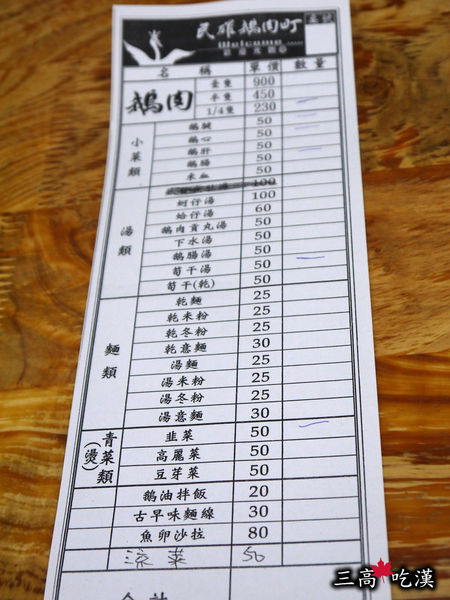 民雄鵝肉町
Welcome
桌號
名稱 單價 數量
鵝肉
全隻 900
半隻 450
1/4隻 230
小菜類
鵝腱 50
鵝心 50
鵝肝 50
鵝腸 50
米血 50
100
湯類
蚵仔湯 100
蛤仔湯 60
鵝肉貢丸湯 50
下水湯 50
鵝腸湯 50
筍干湯 50
筍干(乾) 50
麵類
乾麵 25
乾米粉 25
乾冬粉 25
乾意麵 30
湯麵 25
湯米粉 25
湯冬粉 25
湯意麵 30
青菜類(燙)
韭菜 50
高麗菜 50
豆芽菜 50
鵝油拌飯 20
古早味麵線 30
魚卵沙拉 80
涼菜 50
合計
三高吃漢